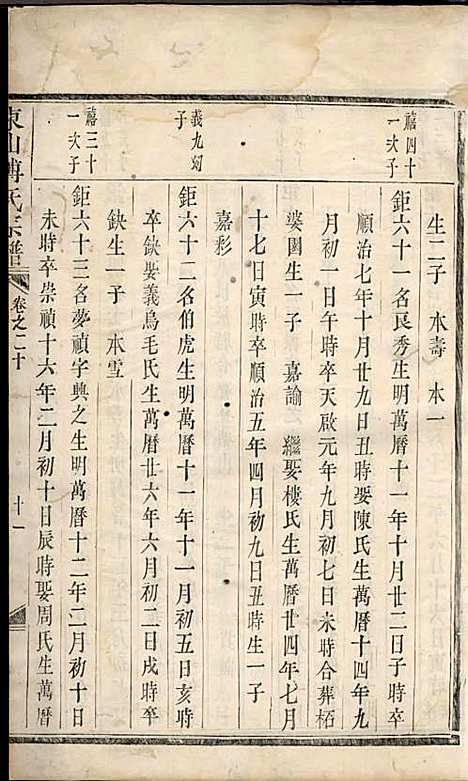 生二子 本壽 本一
禧四十一次子
鉅六十一名良秀生明萬曆十一年十月廿二日子時卒
順治七年十月廿九日丑時娶陳氏生萬曆十四年九
月初一日午時卒天啟元年九月初七日未時合葬栢
婆園生一子 嘉諭 繼娶樓氏生萬曆廿四年七月
十七日寅時卒順治五年四月初九日丑時生一子
嘉彩
義九幼子
鉅六十二名伯虎生明萬曆十一年十一月初五日亥時
卒缺娶義烏毛氏生萬曆廿六年六月初二日戌時卒
缺生一子 本雪
禧三十一次子
鉅六十三名夢禎字典之生明萬曆十二年二月初十日
未時卒崇禎十六年二月初十日辰時娶周氏生萬曆
東山傅氏宗譜 卷之二十 十一